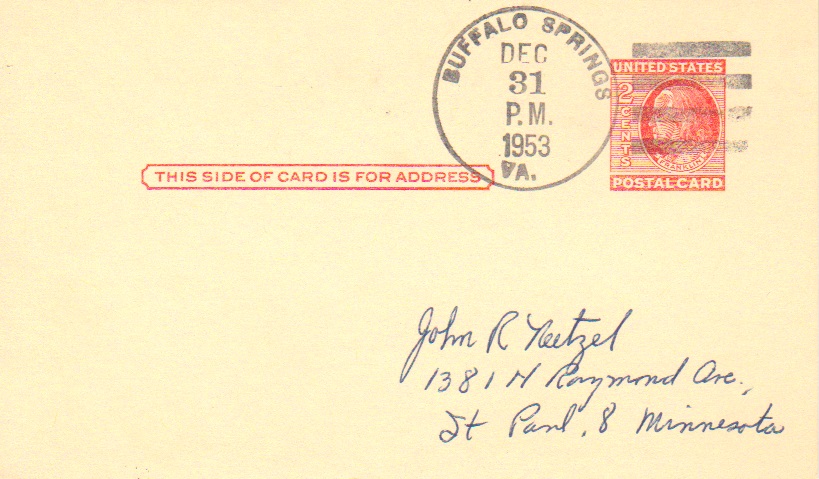 BUFFALO SPRINGS
DEC
31
P.M.
1953
VA.
UNITED STATES
2 CENTS
FRANKLIN
POSTAL CARD
THIS SIDE OF CARD IS FOR ADDRESS
John R Neetzel
1381 N Raymond Ave.,
St Paul, 8 Minnesota